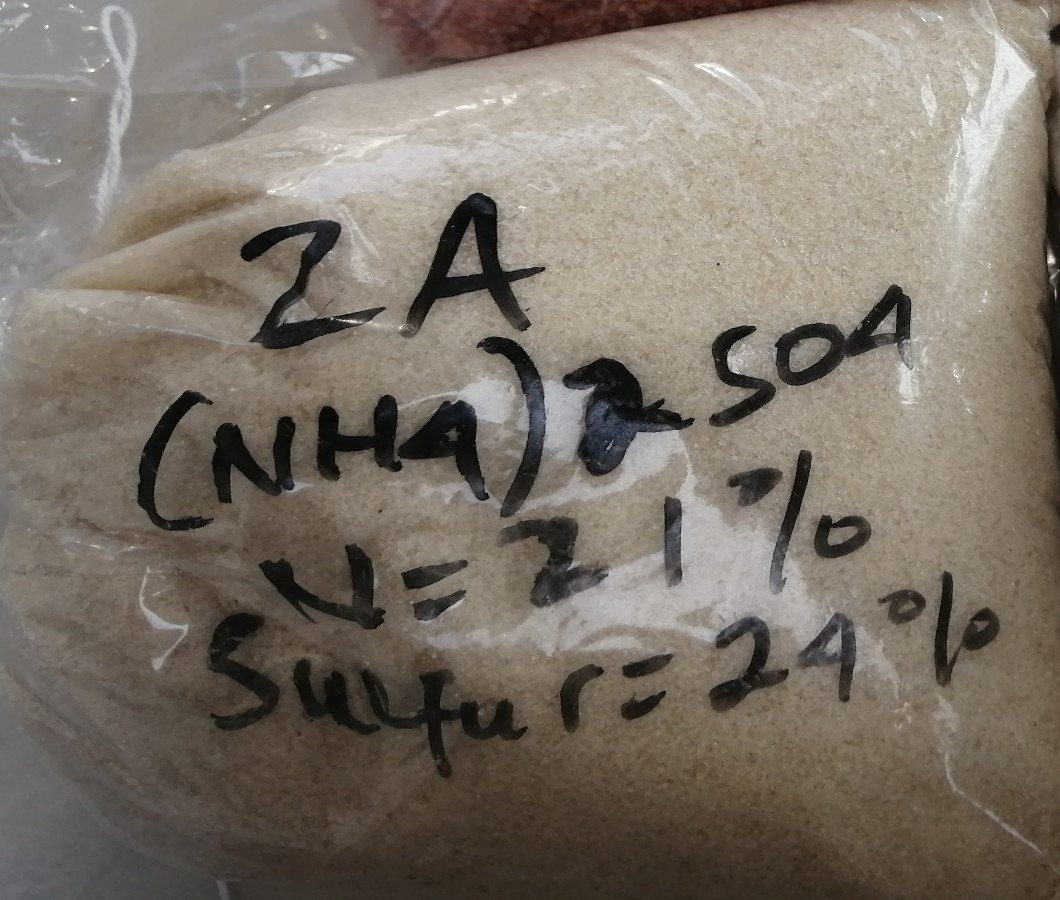 ZA
(NH4)2 SO4
N = 21%
Sulfur = 24%